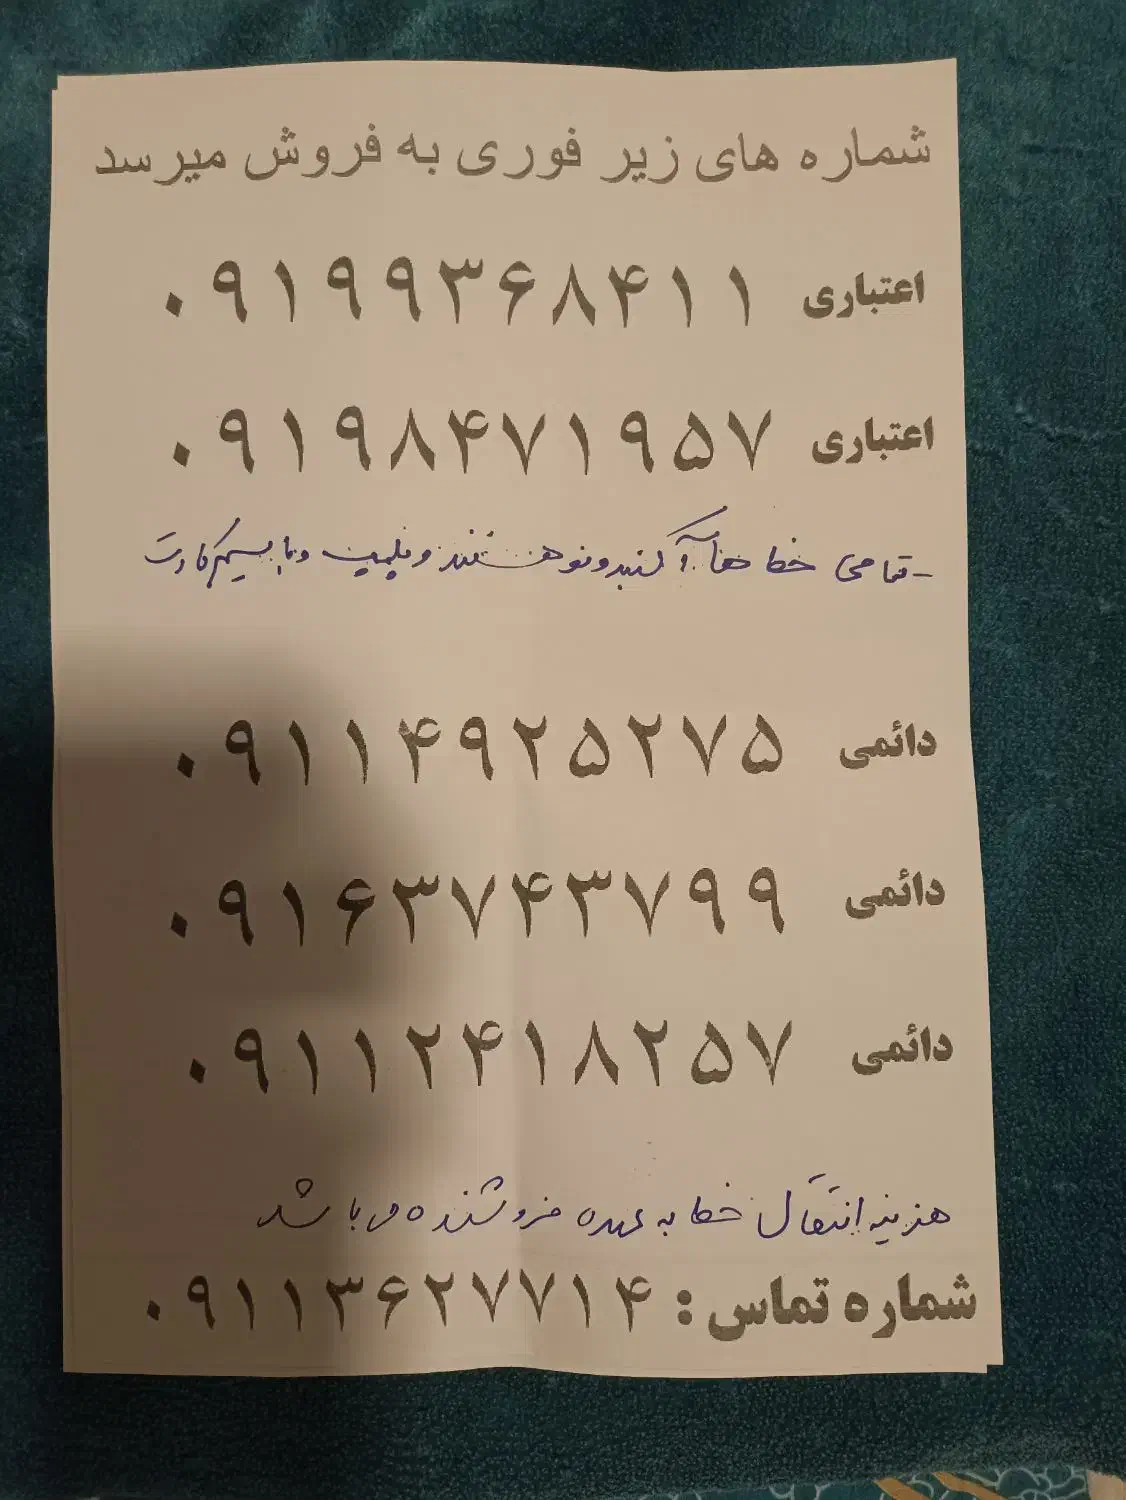 شماره های زیر فوری به فروش میرسد
اعتباری ۰۹۱۹۹۳۶۸۴۱۱
اعتباری ۰۹۱۹۸۴۷۱۹۵۷
- تمامی خط ها آکبند و نو هستند و پلمپ و با سیم کارت
دائمی ۰۹۱۱۴۹۲۵۲۷۵
دائمی ۰۹۱۶۳۷۴۳۷۹۹
دائمی ۰۹۱۱۲۴۱۸۲۵۷
هزینه انتقال خط به عهده فروشنده می باشد
شماره تماس : ۰۹۱۱۳۶۲۷۷۱۴